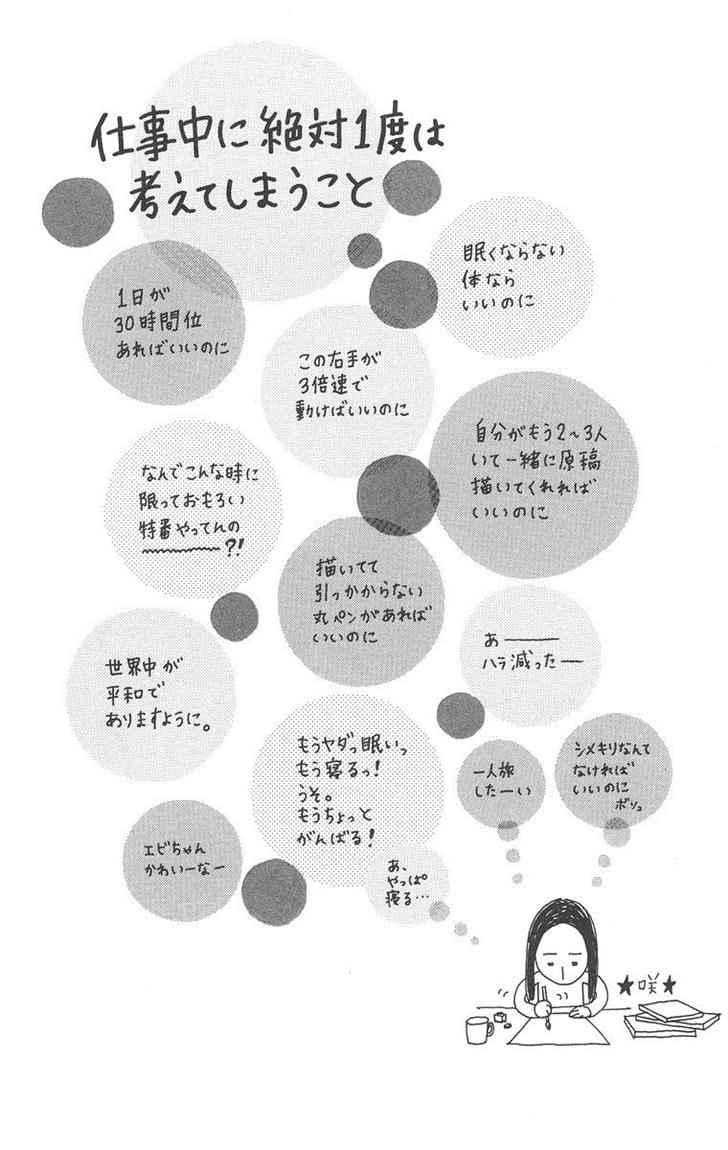 仕事中に絶対1度は
考えてしまうこと
眠くならない
体なら
いいのに
1日が
30時間位
あればいいのに
この右手が
3倍速で
動けばいいのに
自分がもう2~3人
いて一緒に原稿
描いてくれれば
いいのに
なんでこんな時に
限っておもろい
特番やってんの
〜〜〜〜?!
描いてて
引っかからない
丸ペンがあれば
いいのに
あ――
ハラ減ったー
世界中が
平和で
ありますように。
もうヤダっ眠いっ
もう寝るっ!
うそ。
もうちょっと
がんばる!
一人旅
したーい
シメキリなんて
なければ
いいのに
ボソッ
エビちゃん
かわいーなー
あ、
やっぱ
寝る…
★咲★